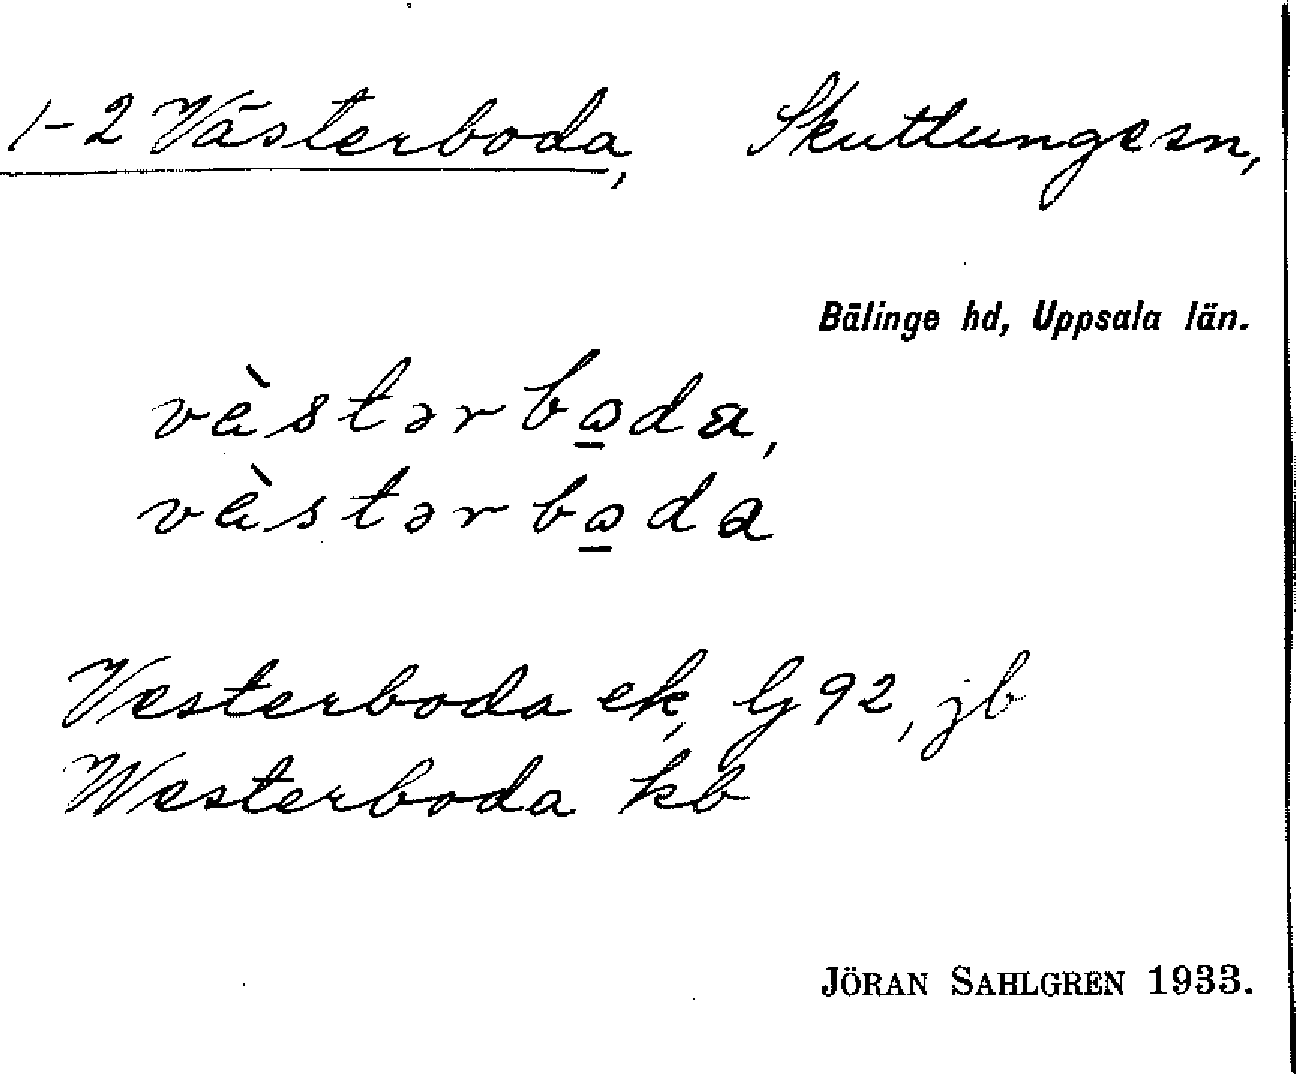 1-2 Västerboda, Skuttunge sn,
Bälinge hd, Uppsala län.
vàstərbωda,
vàstərbωda
Vesterboda ek, Gj 92, jb
Westerboda kb
JÖRAN SAHLGREN 1933.